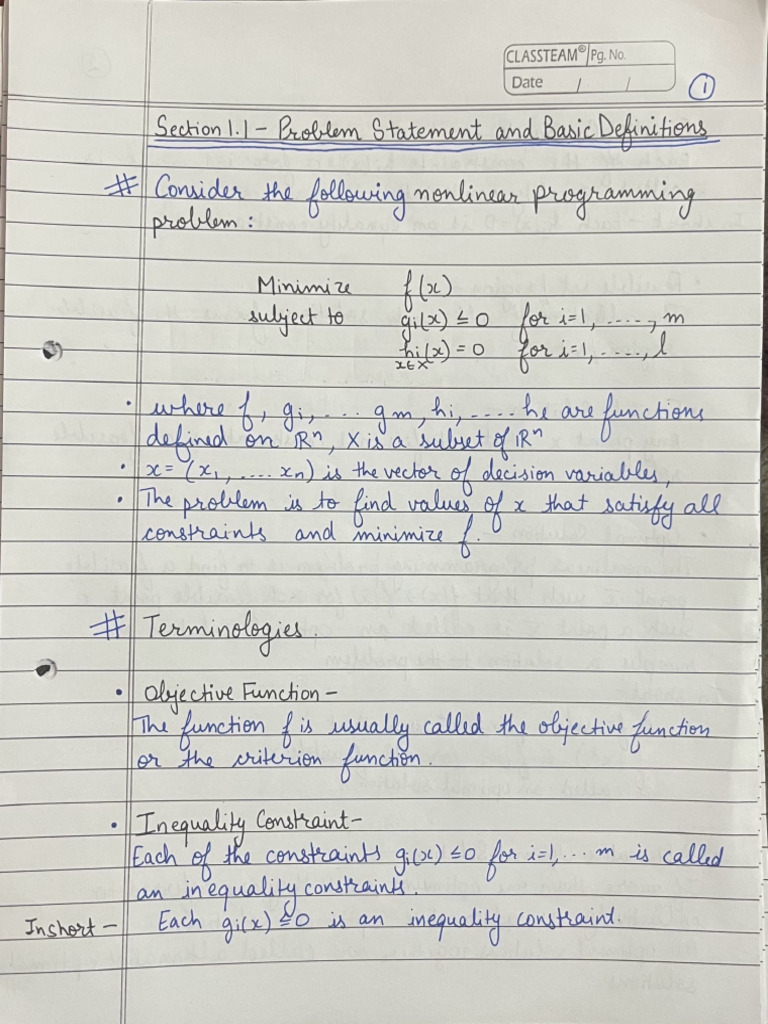 CLASSTEAM® Pg. No.
Date / /
1
Section 1.1 – Problem Statement and Basic Definitions
# Consider the following nonlinear programming
problem :
Minimize f(x)
subject to gi(x) ≤ 0 for i=1, ....., m
hi(x) = 0 for i=1, ....., l
x∈X
• where f, gi, ... gm, hi, .... he are functions
defined on ℝⁿ, X is a subset of ℝⁿ
• x = (x₁, .... xn) is the vector of decision variables,
• The problem is to find values of x that satisfy all
constraints and minimize f.
# Terminologies.
• Objective Function –
The function f is usually called the objective function
or the criterion function.
• Inequality Constraint –
Each of the constraints gi(x) ≤0 for i=1, ... m is called
an inequality constraints.
Inshort – Each gi(x) ≤0 is an inequality constraint.